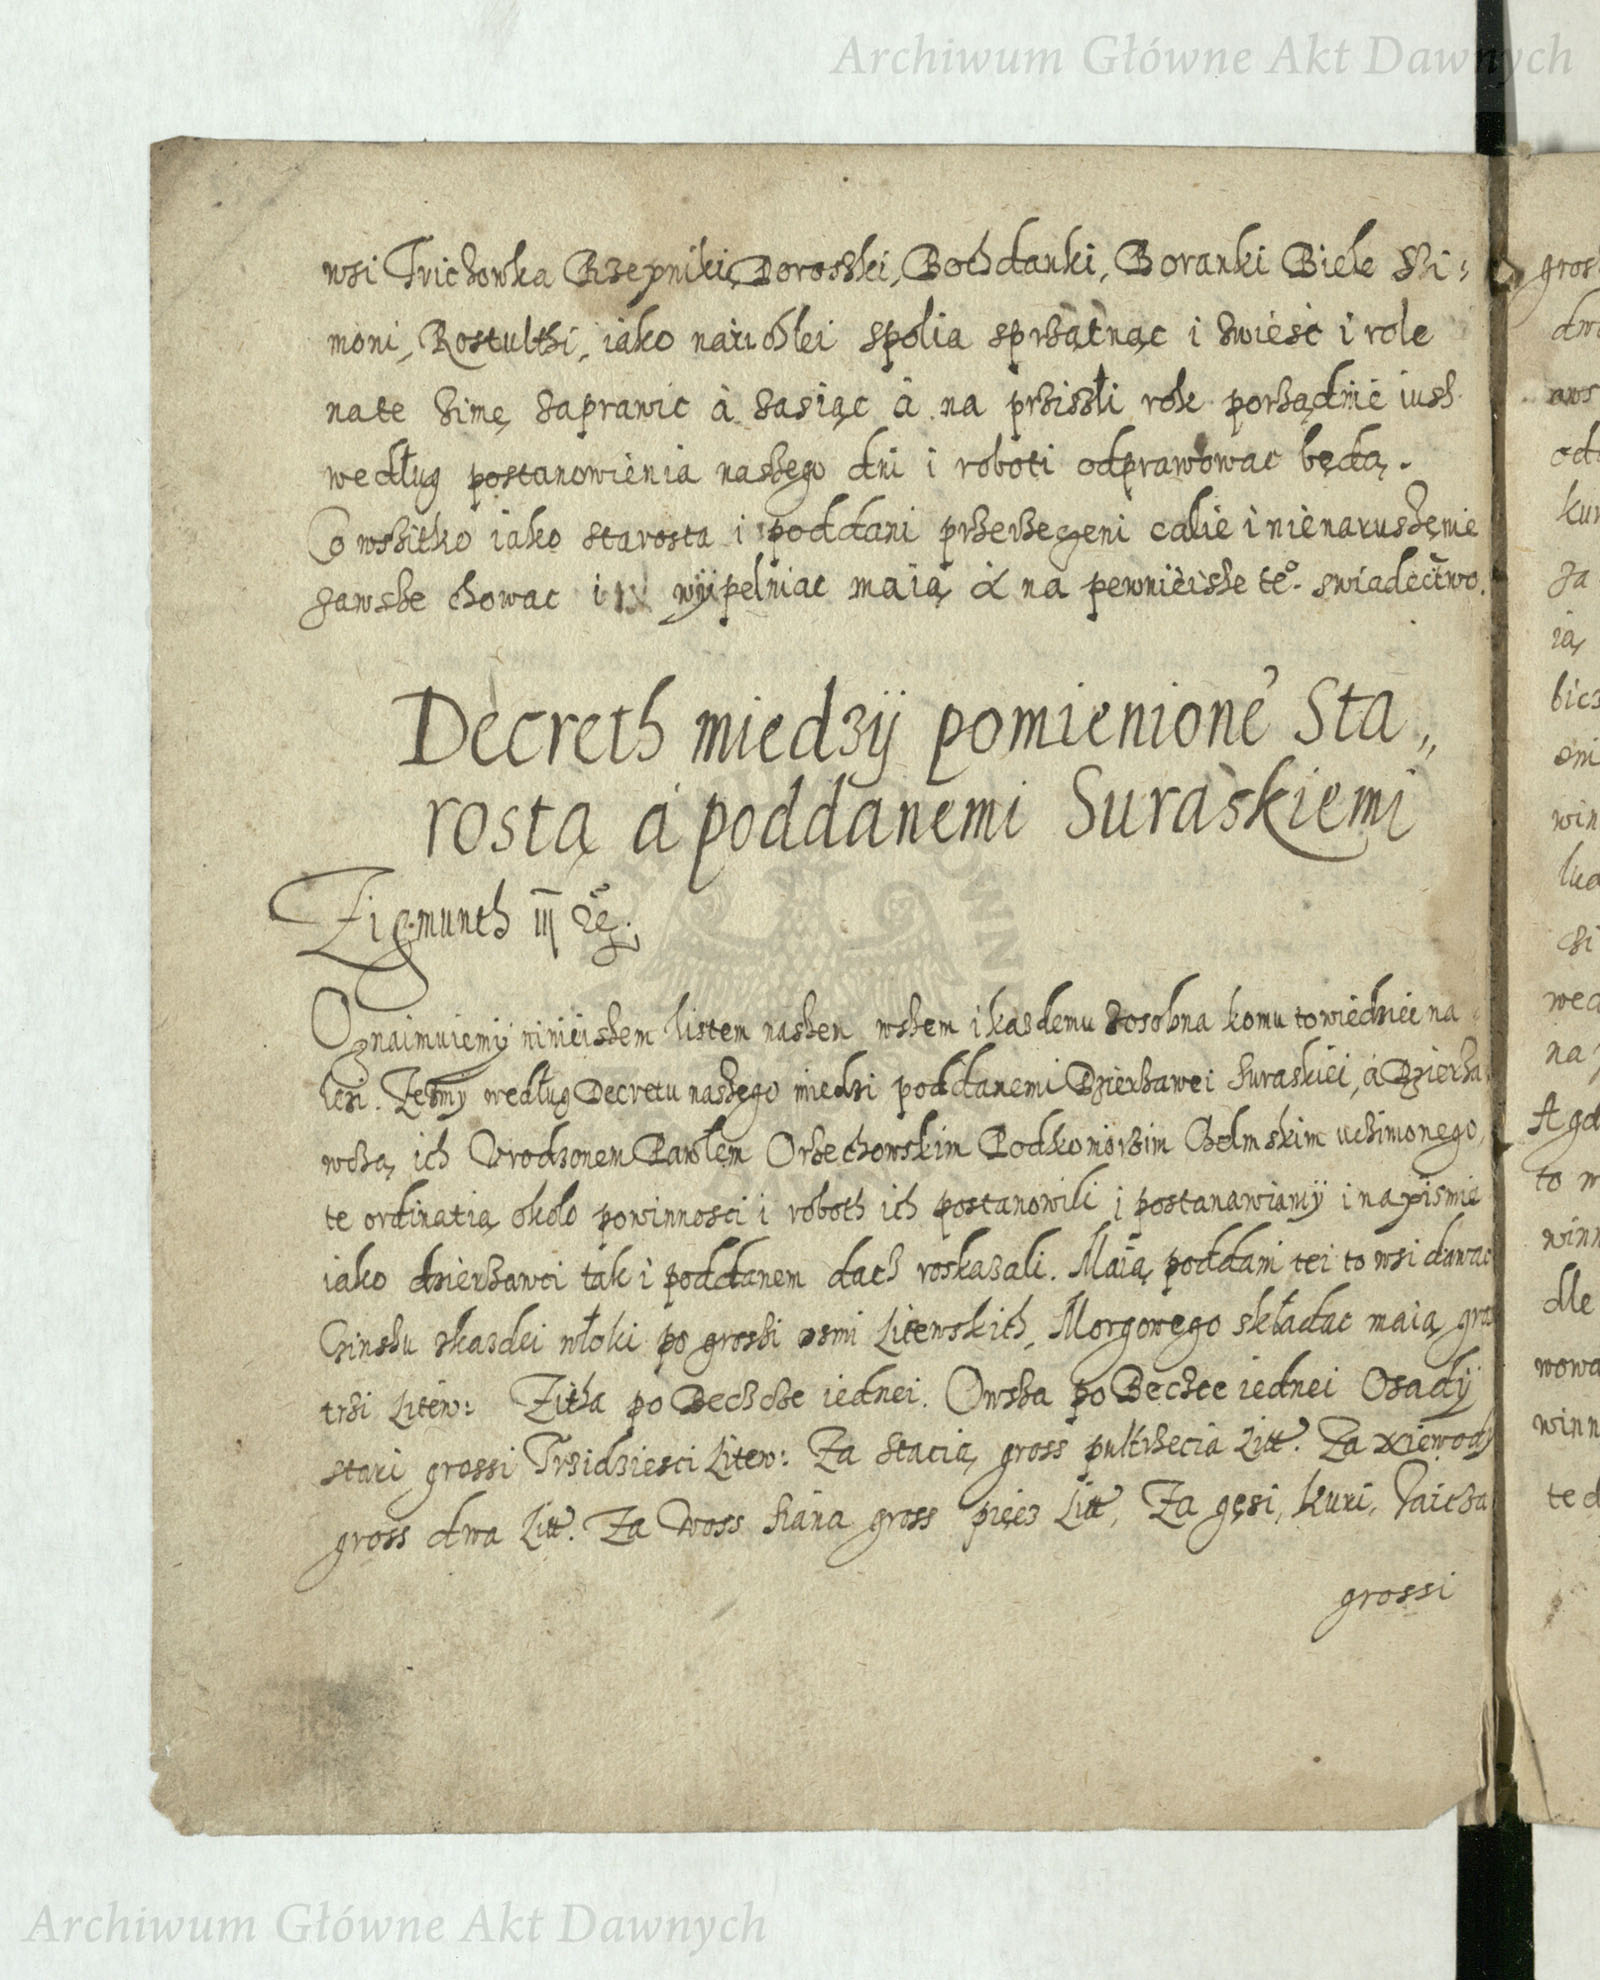 Archiwum Główne Akt Dawnych
wsi Trichowka Rzepniki, Doroszki, Bochdanki, Boranki Biele Szi:
moni, Rostulthi, iako narichlei spolia sprzątnąc i zwiesc i role
na te zimę zaprawic à zasiąc à na prziszłi rok porządnie iusz
według postanowienia naszego dni i roboti odprawowac będą.
Co wszitko iako starosta i poddani przerzegeni calie i nienaruszenie
zawsze chowac i wÿpelniac maią à na pewnieisze te° swiadectwo.
Decreth miedzÿ pomienione Sta„
rostą á poddanemi Suraskiemi
Zigmunth III
Oznaimuiemÿ ninieiszem listem naszen wszem i kazdemu zosobna komu to wiedziec na
lezi. Zesmy według Decretu naszego miedzi poddanemi Dzierzawei Suraskiei, á Dzierza
wczą ich Vrodzonem Pawłem Orzechowskim Podkomorzim Chelmskim uczinionego,
te ordinatią około powinnosci i roboth ich postanowili i postanawiamÿ i na pismie
iako dzierzawci tak i poddanem dach roskazali. Maią poddani tei to wsi dawac
Czinshu zkazdei włoki po groszi osmi Litewskich, Morgowego składac maią gro
trzi Litew: Zitha po Beczcze iednei. Owsza po Beczce iednei Osadÿ
stari grossi Trzidziesci Litew: Za stacią gross pultrzecia Litt. Za niewodÿ
gross dwa Litt. Za Woss siana gross pięcz Litt, Za gęsi, kuri, Iaicza
grossi
Archiwum Główne Akt Dawnych